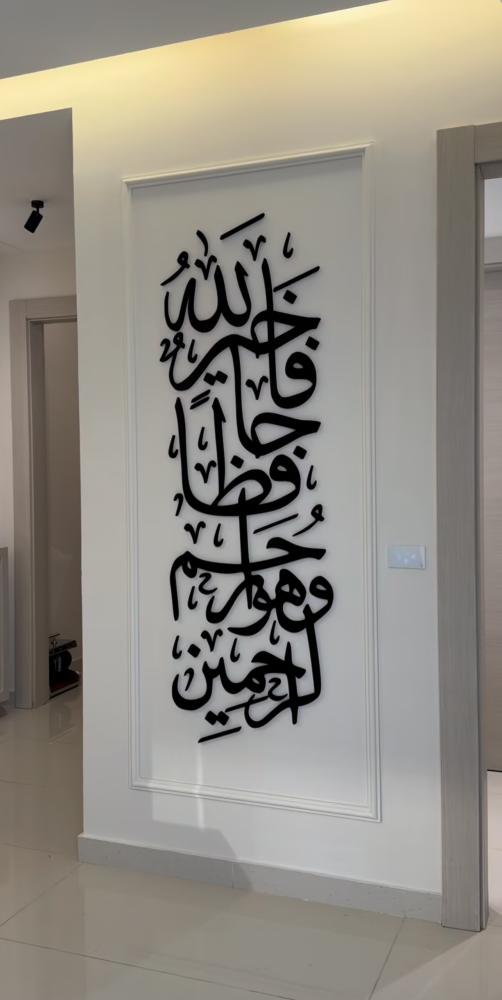 فَاللَّهُ خَيْرٌ
حَافِظًا
وَهُوَ أَرْحَمُ
الرَّاحِمِينَ